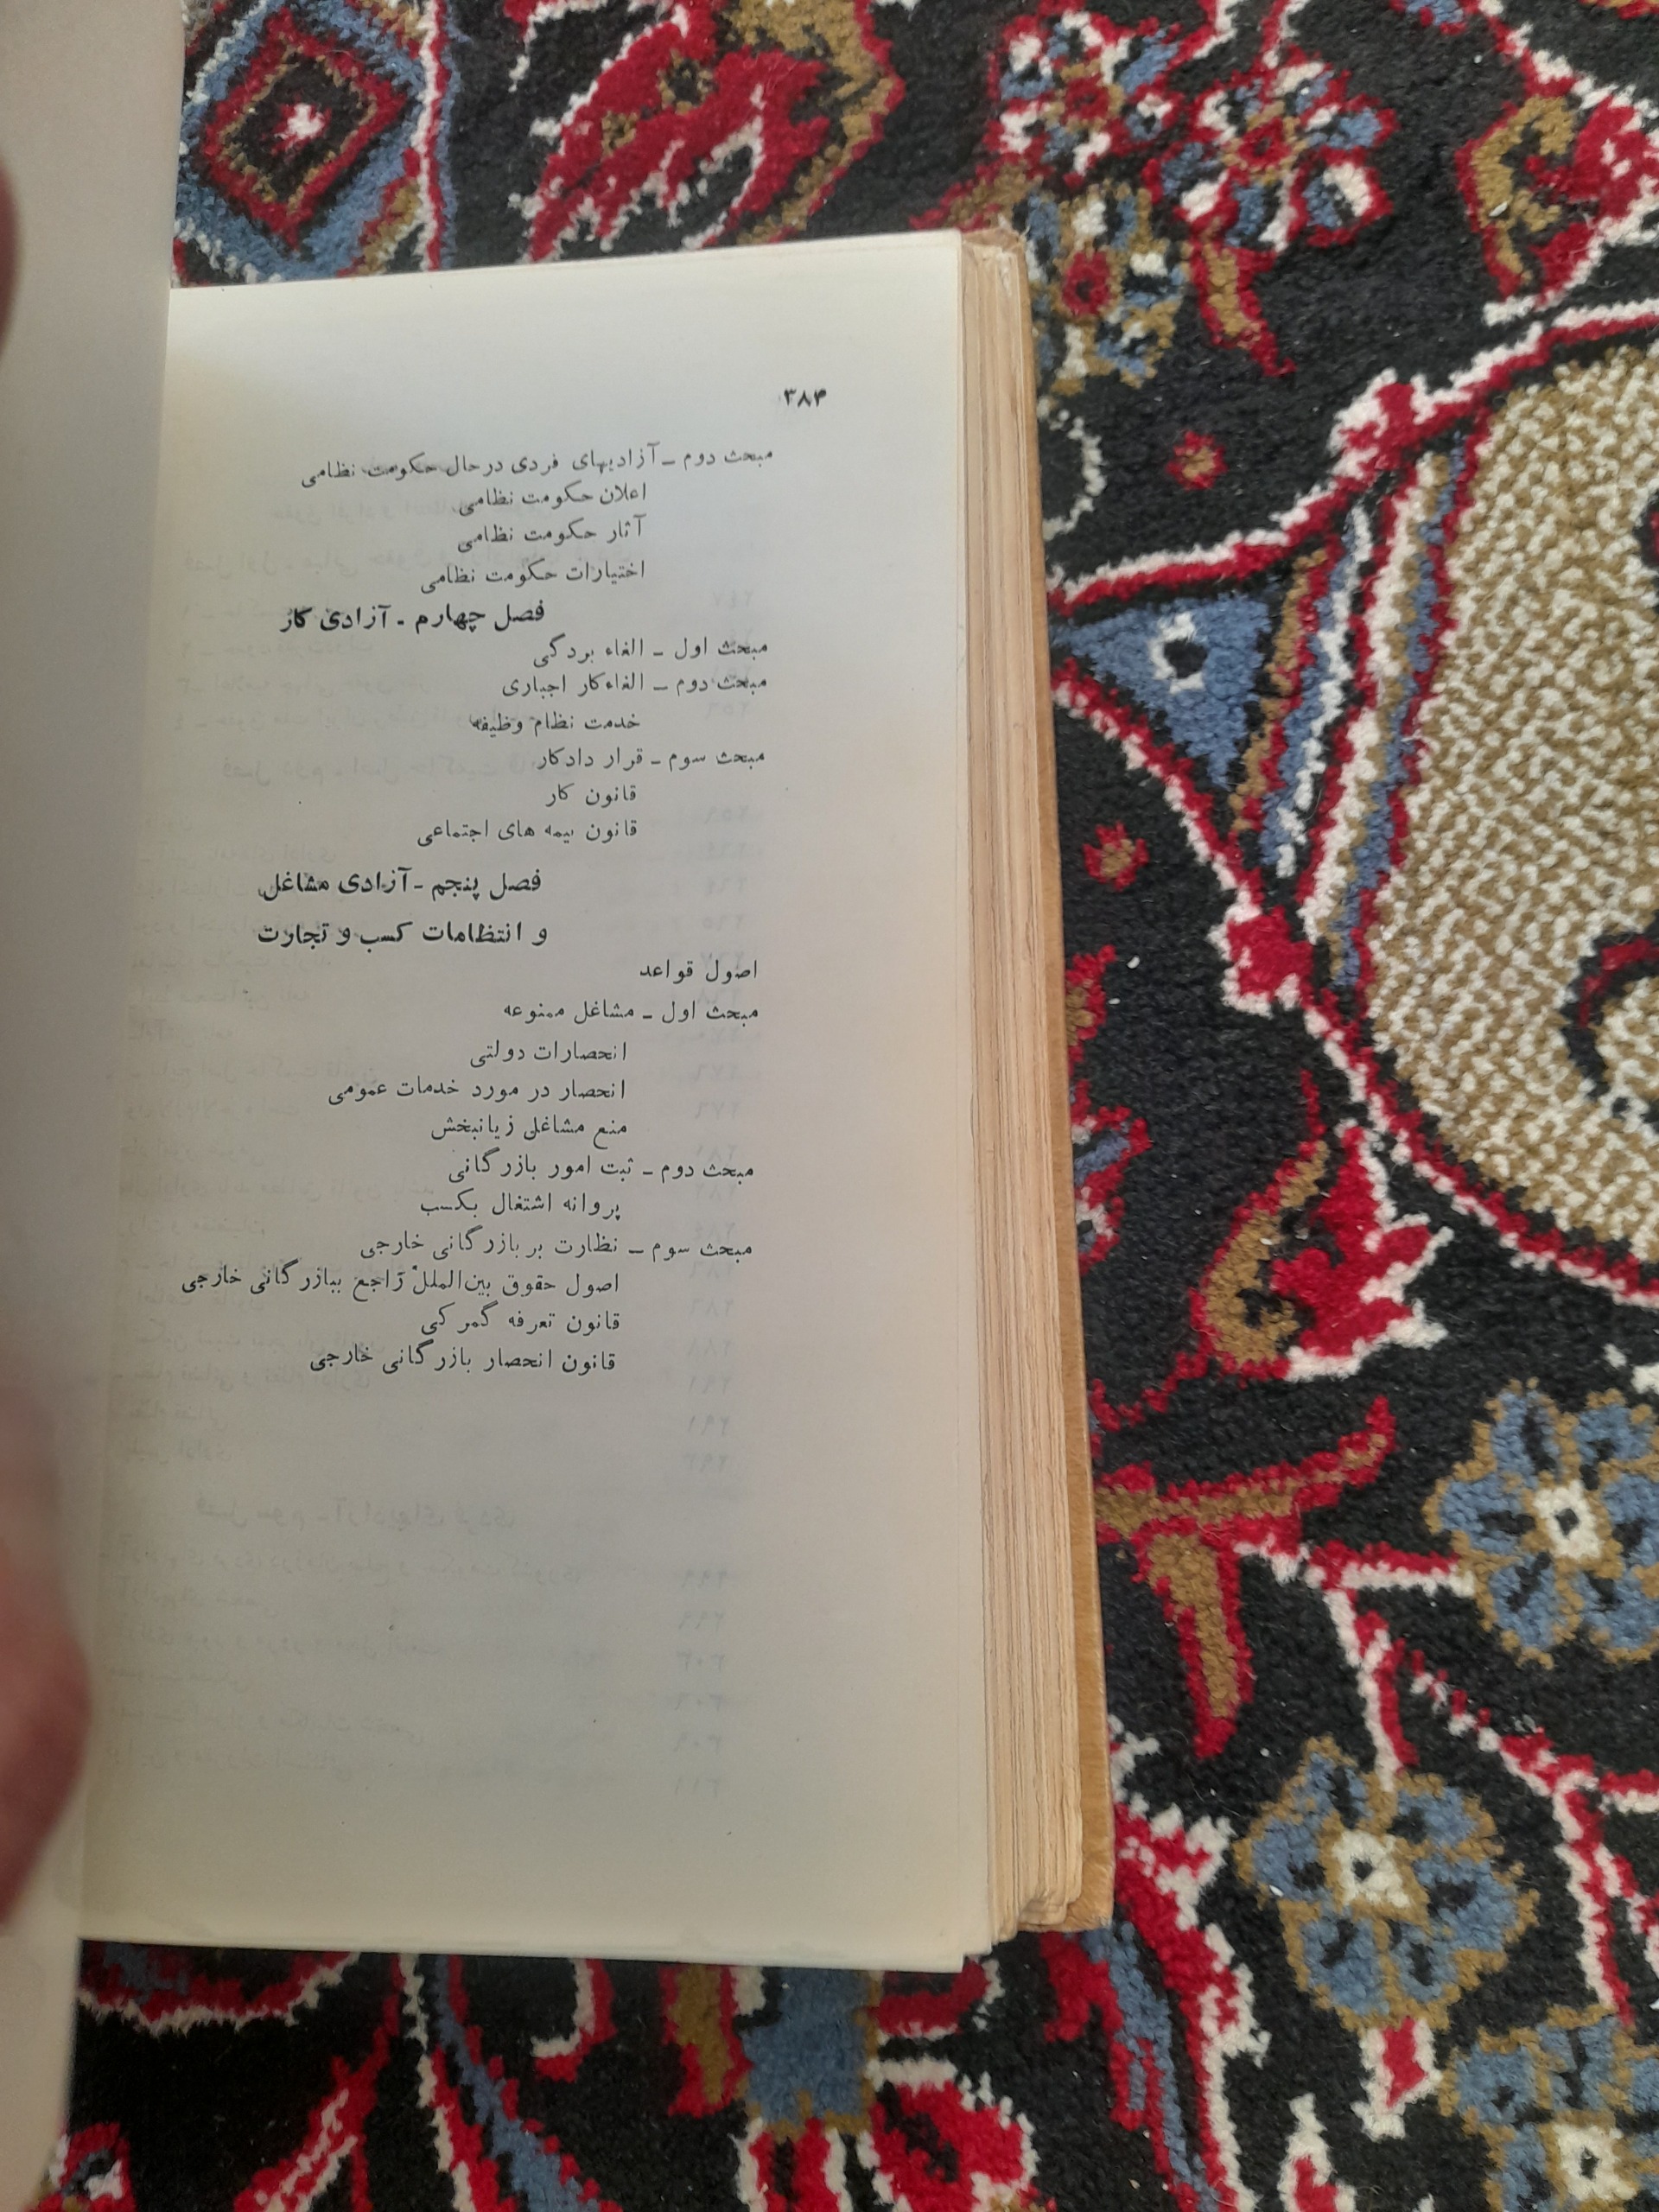 ۳۸۴
مبحث دوم ـ آزادیهای فردی درحال حکومت نظامی
اعلان حکومت نظامی
آثار حکومت نظامی
اختیارات حکومت نظامی
فصل چهارم - آزادی کار
مبحث اول ـ الغاء بردگی
مبحث دوم ـ الغاءکار اجباری
خدمت نظام وظیفه
مبحث سوم ـ قرار دادکار
قانون کار
قانون بیمه های اجتماعی
فصل پنجم - آزادی مشاغل
و انتظامات کسب و تجارت
اصول قواعد
مبحث اول ـ مشاغل ممنوعه
انحصارات دولتی
انحصار در مورد خدمات عمومی
منع مشاغل زیانبخش
مبحث دوم ـ ثبت امور بازرگانی
پروانه اشتغال بکسب
مبحث سوم ـ نظارت بر بازرگانی خارجی
اصول حقوق بین‌الملل راجع ببازرگانی خارجی
قانون تعرفه گمرکی
قانون انحصار بازرگانی خارجی